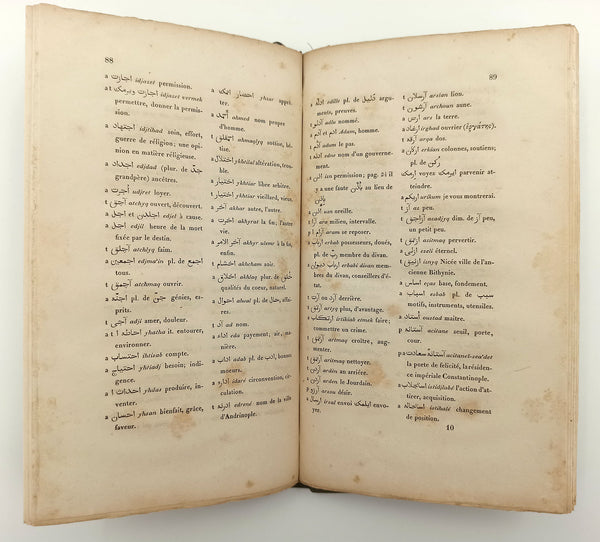 88
a اجازت idjazet permission.
a اجازت ويرمك t idjazet vermek
permettre, donner la permis-
sion.
a اجتهاد idjtihad soin, effort,
guerre de religion; une opi-
nion en matière religieuse.
a اجداد edjdad (plur. de جدّ
grandpère) ancêtres.
a اجرت udjret loyer.
t آجيق atchyq ouvert, découvert.
a اجل edjel à cause.
a اجل edjil heure de la mort
fixée par le destin.
t atchlyq faim.
a اجمعين edjma'in pl. de
tous.
t آچمق atchmaq ouvrir.
a اجنّه pl. de جنّ génies, es-
prits.
t آجى adji amer, douleur.
a احاطه yhatha it. entourer,
environner.
a احتساب ihtisab compte.
a احتياج yhtiadj besoin; indi-
gence.
a احداث yhdas produire, in-
venter.
a احسان yhsan bienfait, grâce,
faveur.
a احضار yhzar apprê-
ter.
a احمد ahmed nom propre
d'homme.
t احمقلق ahmaqlyq sottise, bê-
tise.
a اختلال ykhtilal altération, trou-
ble.
a اختيار ykhtiar libre arbitre.
t اختيار ykhtiar vieillard, vieux.
a آخر akhar autre, l'autre.
a آخرت akhyrat la fin; l'autre
vie.
a آخر الامر akhyr ulemr à la fin,
enfin.
t آخشام akhcham soir.
a اخلاق akhlaq plur. de خلق
qualités du cœur, naturel.
a احوال ahwal pl. de حال affai-
res.
t آد ad nom.
a ادا eda payement; air; ma-
nière.
a آداب adab pl. de ادب, bonnes
mœurs.
a اداره idaré circonvention, cir-
culation.
t ادرنه edrené nom de la ville
d'Andrinople.
89
a ادلّه edille pl. de دليل argu-
ments, preuves.
t adlu nommé.
a آدم adam, homme.
t adam le pas.
t edna nom d'un gouverne-
ment.
a اذن izn permission; pag. il
y a une faute au lieu de
اذن
a اذن uzn oreille.
t آرا ara milieu, intervalle.
p آرام aram se reposer.
a ارباب erbab possesseurs, doués,
pl. de ربّ membre du divan.
a ارباب ديوان erbabi divan mem-
bres du divan, conseillers d'é-
tat.
t ard ou art derrière.
t artyq plus, d'avantage.
a ارتكاب irtikiab etmek faire;
commettre un crime.
t ارتمق artmaq croître, aug-
menter.
t aritmaq nettoyer.
t ardin en arrière.
t اردن arden le Jourdain.
p آرزو arzou désir.
a ارسال irsal ايلمك envoi envo-
yer.
t ارسلان arslan lion.
t آرشون archoun aune.
a ارض ars la terre.
a ارغاد irghad ouvrier (ἐργάτης).
t آرقه arqa dos.
a اركان erkian colonnes, soutiens;
pl. de ركن
t ايرمك voyez ايرمك parvenir at-
teindre.
t urikum je vous montrerai.
t از az peu.
t azadjyq dim. de از peu,
un petit peu.
t ازتمق azitmaq pervertir.
t ezeli éternel.
t ازنيق isnyq Nicée ville de l'an-
cienne Bithynie.
a اساس eças base, fondement.
a اسباب esbab pl. de سبب
motifs, instruments, utensiles.
p استاد oustad maître.
p آستانه acitane seuil, porte,
cour.
pa آستانه سعادت acitanet-sea'det
la porte de felicité, la rési-den-
ce impériale Constantinople.
a استجلاب istidjlabe l'action d'at-
tirer, acquisition.
a استحاله istihalé changement
de position.
10